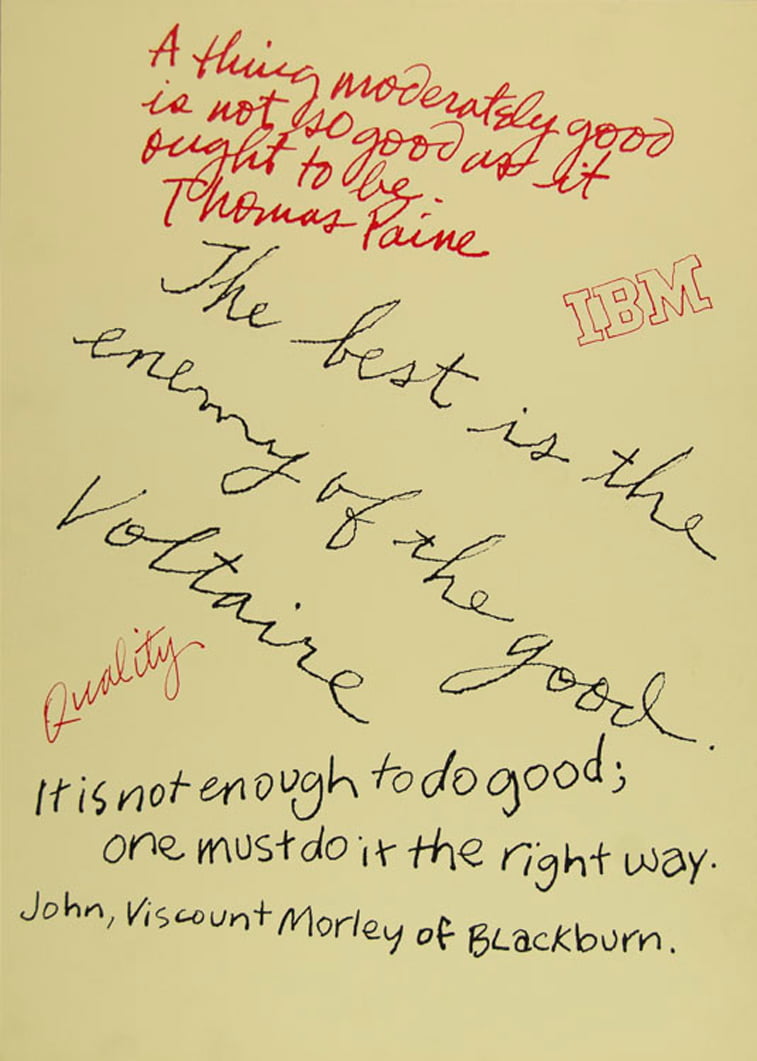 A thing moderately good
is not so good as it
ought to be.
Thomas Paine
IBM
The best is the
enemy of the good.
Voltaire
Quality
It is not enough to do good;
one must do it the right way.
John, Viscount Morley of Blackburn.